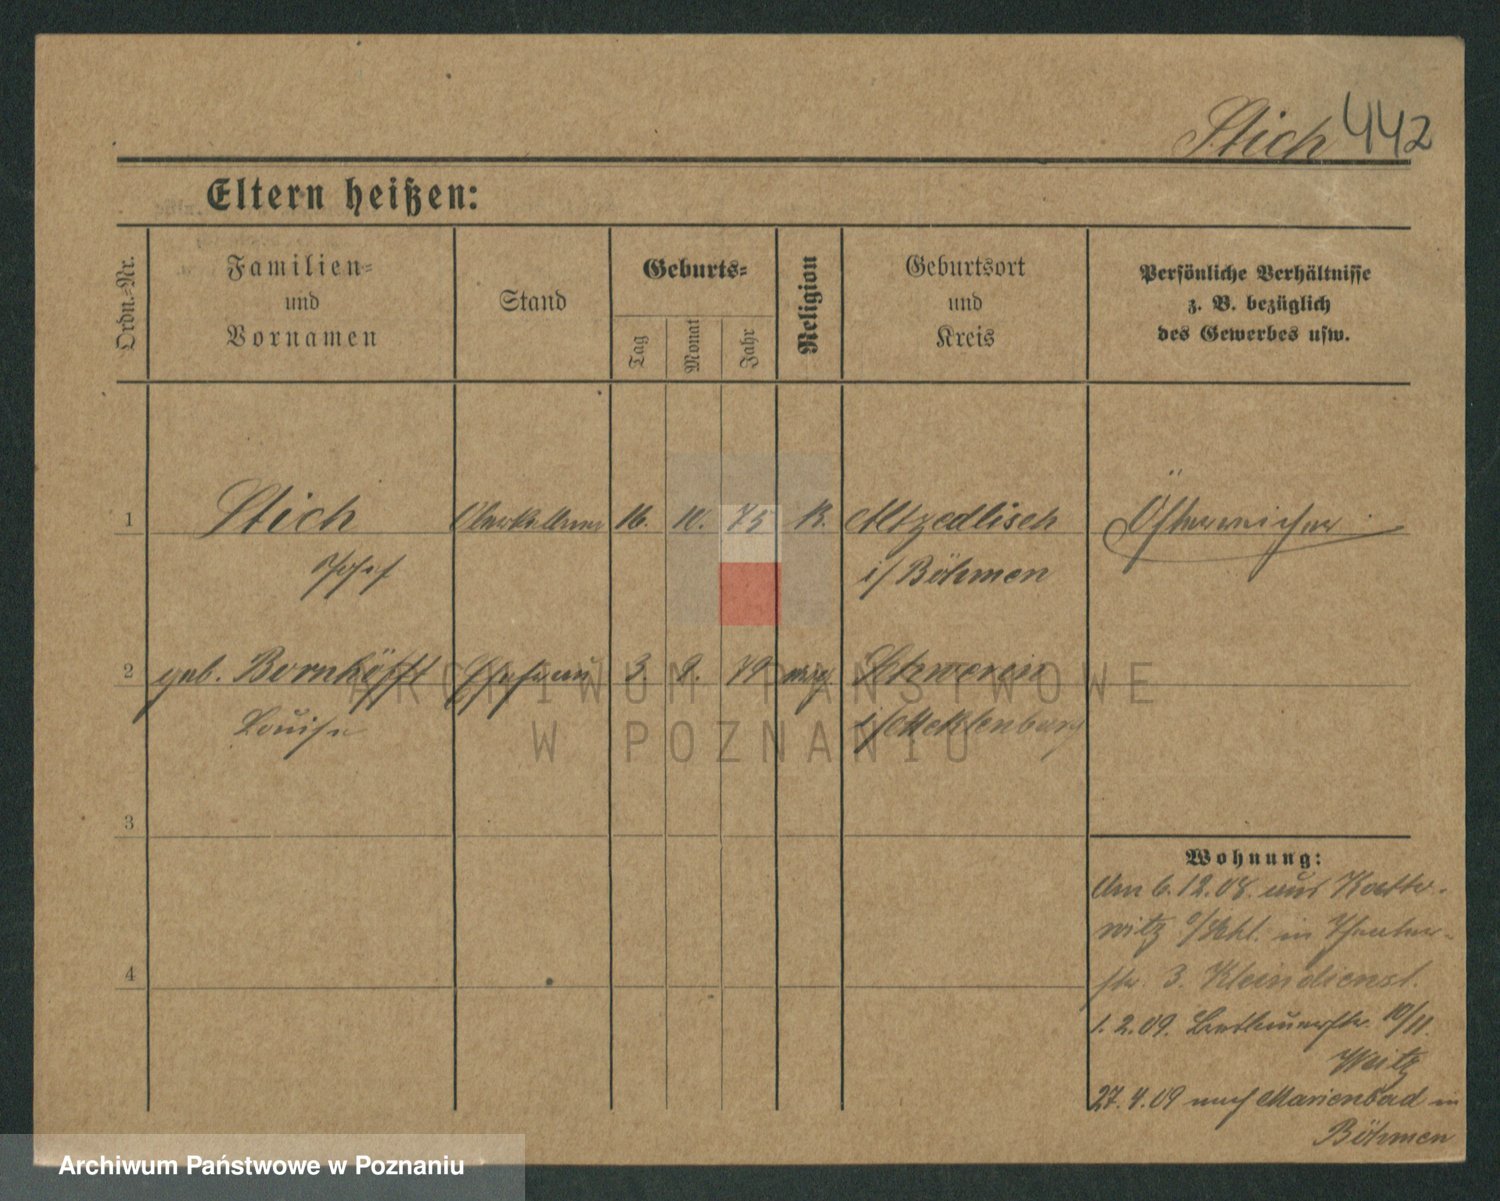 Stich 442
Eltern heißen:
Ordn.-Nr.
Familien-
und
Vornamen
Stand
Geburts-
Tag
Monat
Jahr
Religion
Geburtsort
und
Kreis
Persönliche Verhältnisse
z. B. bezüglich
des Gewerbes usw.
1 Stich Oberkellner 16. 10. 75 K. Altzedlisch Österreicher
Josef i/Böhmen
2 geb. Bornhöfft Ehefrau 3. 8. 79 evg Schwerin
Louise i/Mecklenburg
3
4
Wohnung:
Am 6.12.08. aus Katto-
witz o/Schl. in Theater-
str. 3. Kleindienst.
1.2.09. 10/11.
Weitz
27.4.09 nach Marienbad in
Böhmen
ARCHIWUM PAŃSTWOWE
W POZNANIU
Archiwum Państwowe w Poznaniu